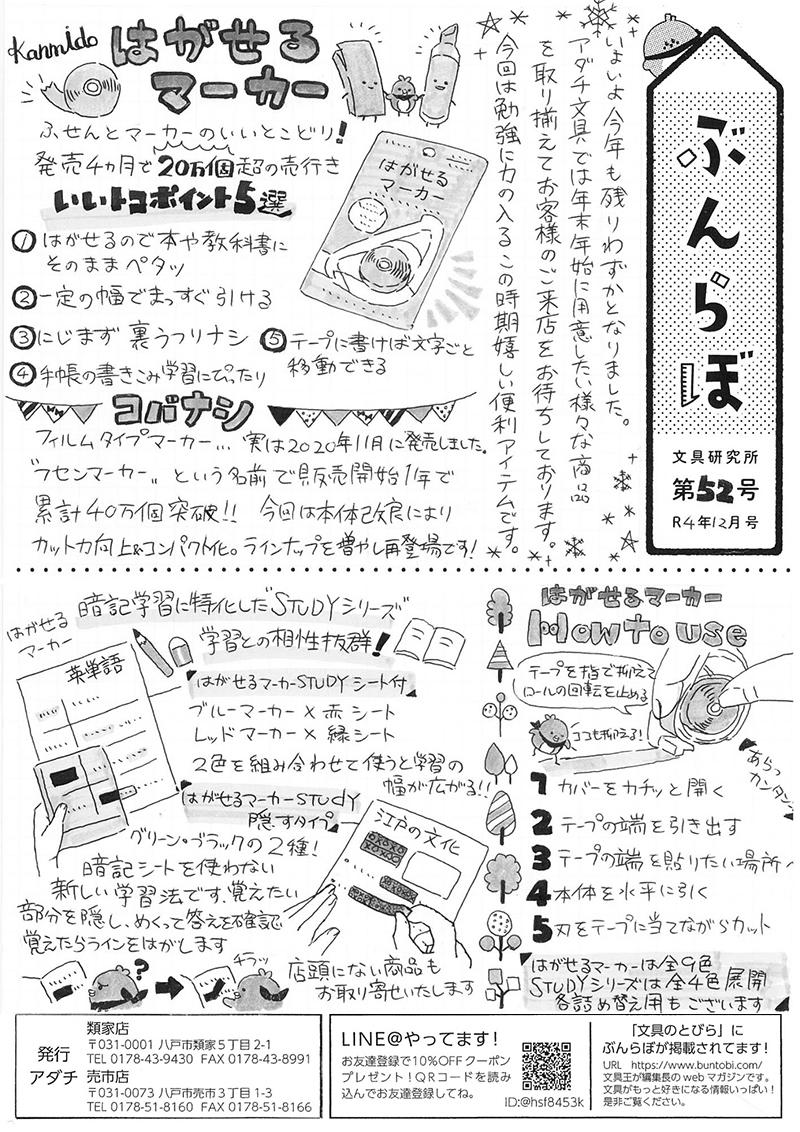 ぶんらぼ
文具研究所
第52号
R4年12月号
いよいよ今年も残りわずかとなりました。
アダチ文具では年末年始に用意したい様々な商品
を取り揃えてお客様のご来店をお待ちしております。
今回は勉強に力の入るこの時期嬉しい便利アイテムです。
Kanmido
はがせる
マーカー
ふせんとマーカーのいいとこどり!
発売4ヵ月で20万個超の売行き
いいトコポイント5選
①はがせるので本や教科書に
そのままペタッ
②一定の幅でまっすぐ引ける
③にじまず裏うつリナシ
④手帳の書きこみ学習にぴったり
⑤テープに書けば文字ごと
移動できる
はがせる
マーカー
コバナシ
フィルムタイプマーカー...実は2020年11月に発売しました。
"フセンマーカー"という名前で販売開始1年で
累計40万個突破!! 今回は本体改良により
カット力向上&コンパクト化。ラインナップを増やし再登場です!
暗記学習に特化した"STUDYシリーズ"
学習との相性抜群!
はがせる
マーカー
英単語
はがせるマーカーSTUDYシート付
ブルーマーカー×赤シート
レッドマーカー×緑シート
2色を組み合わせて使うと学習の
幅が広がる!!
はがせるマーカーSTUDY
隠すタイプ
グリーン・ブラックの2種!
暗記シートを使わない
新しい学習法です、覚えたい
部分を隠し、めくって答えを確認
覚えたらラインをはがします
江戸の文化
?
チラッ
店頭にない商品も
お取り寄せいたします
はがせるマーカー
How to use
テープを指で抑えて
ロールの回転を止める
ココも抑える!
あらっ
カンタン
1 カバーをカチッと開く
2 テープの端を引き出す
3 テープの端を貼りたい場所へ
4 本体を水平に引く
5 刃をテープに当てながらカット
はがせるマーカーは全9色
STUDYシリーズは全4色展開
各詰め替え用もございます
発行
アダチ
類家店
〒031-0001 八戸市類家5丁目2-1
TEL 0178-43-9430 FAX 0178-43-8991
売市店
〒031-0073 八戸市売市3丁目1-3
TEL 0178-51-8160 FAX 0178-51-8166
LINE@やってます!
お友達登録で10%OFFクーポン
プレゼント!QRコードを読み
込んでお友達登録してね。
ID:@hsf8453k
「文具のとびら」に
ぶんらぼが掲載されてます!
URL https://www.buntobi.com/
文具王が編集長のwebマガジンです。
文具がもっと好きになる情報いっぱい!
是非ご覧ください。